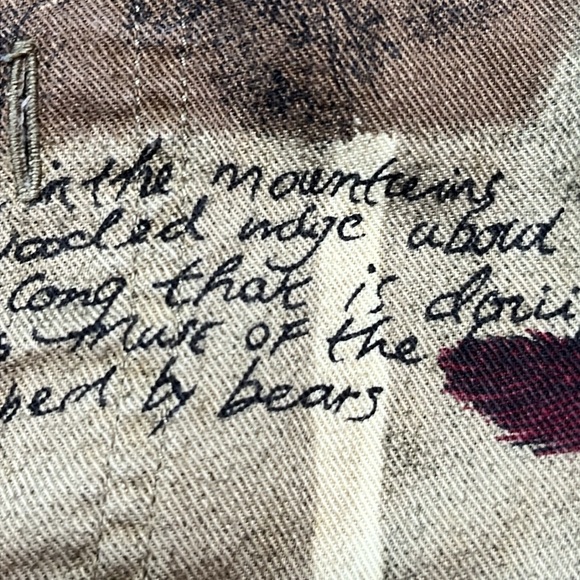 in the mountains
wooded indge aboud
long that is
muse of the
by bears